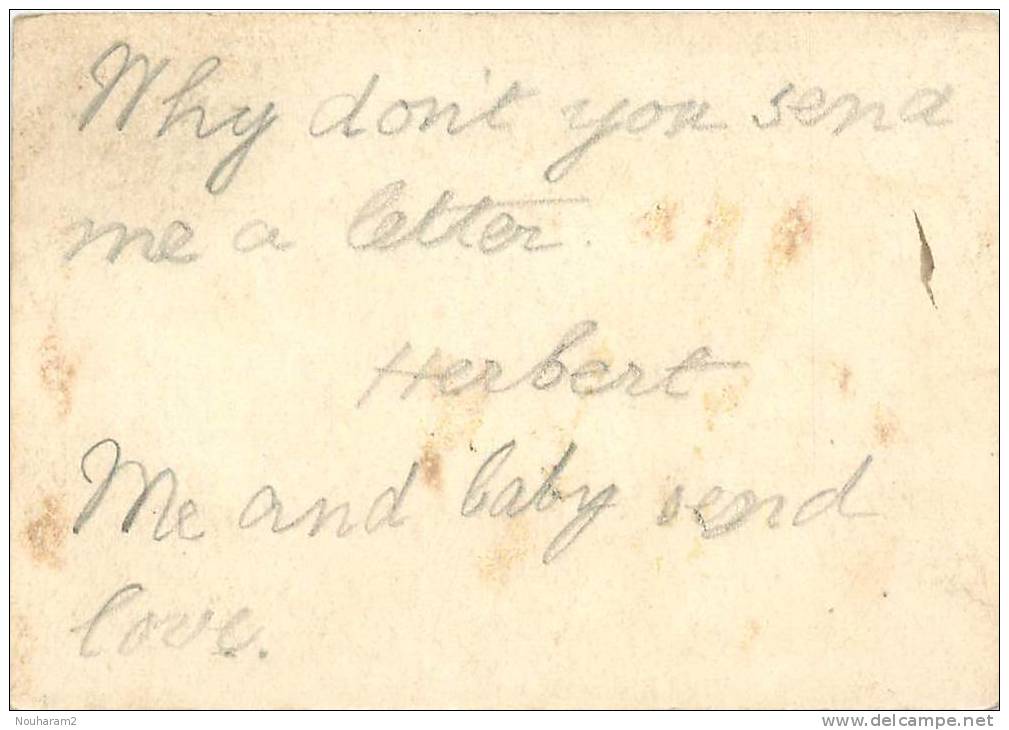 Why don't you send
me a letter.
Herbert
Me and baby send
love.
Nouharam2
www.delcampe.net